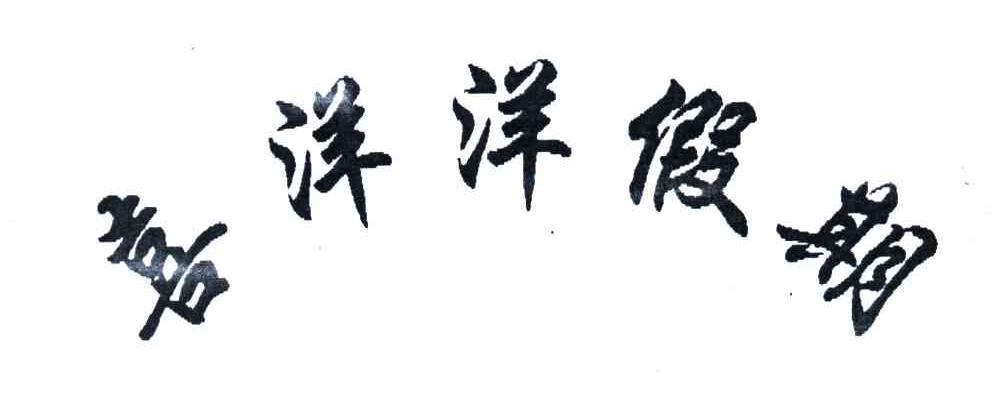 喜洋洋假期